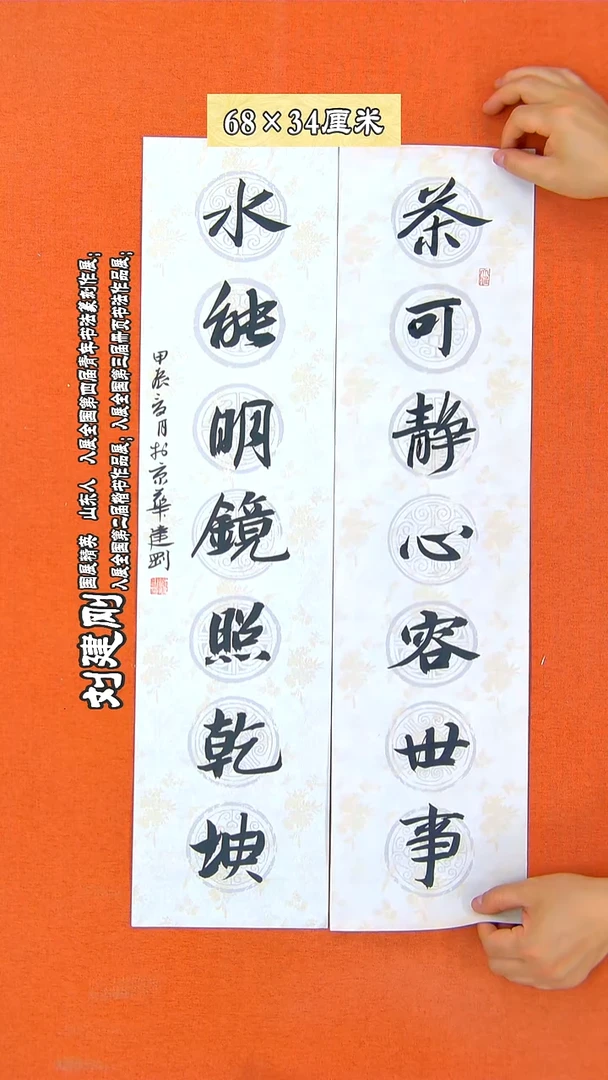 68×34厘米
茶可静心容世事
水能明鏡照乾坤
甲辰音月於京華建刚
刘建刚
国展精英 山东人 入展全国第四届青年书法篆刻作展；
入展全国第二届楷书作品展；入展全国第三届册页书法作品展；